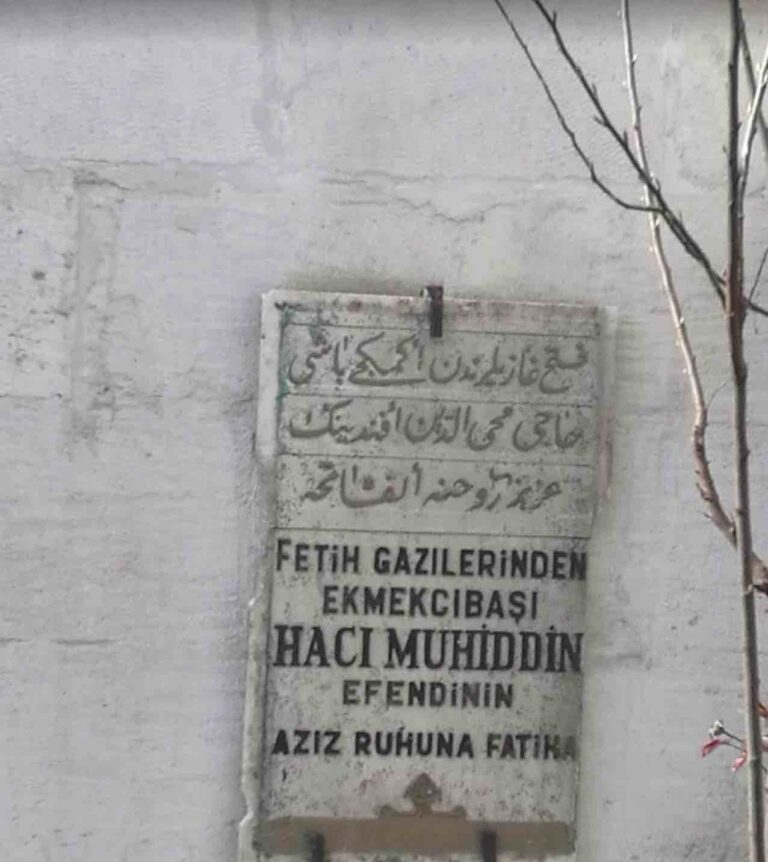 فتح غازيلرندن أكمكجى باشى
حاجى محى الدين أفندينك
عزيز روحنه ألفاتحه
FETİH GAZILERİNDEN
EKMEKCIBAŞI
HACI MUHİDDİN
EFENDİNİN
AZIZ RUHUNA FATİHA